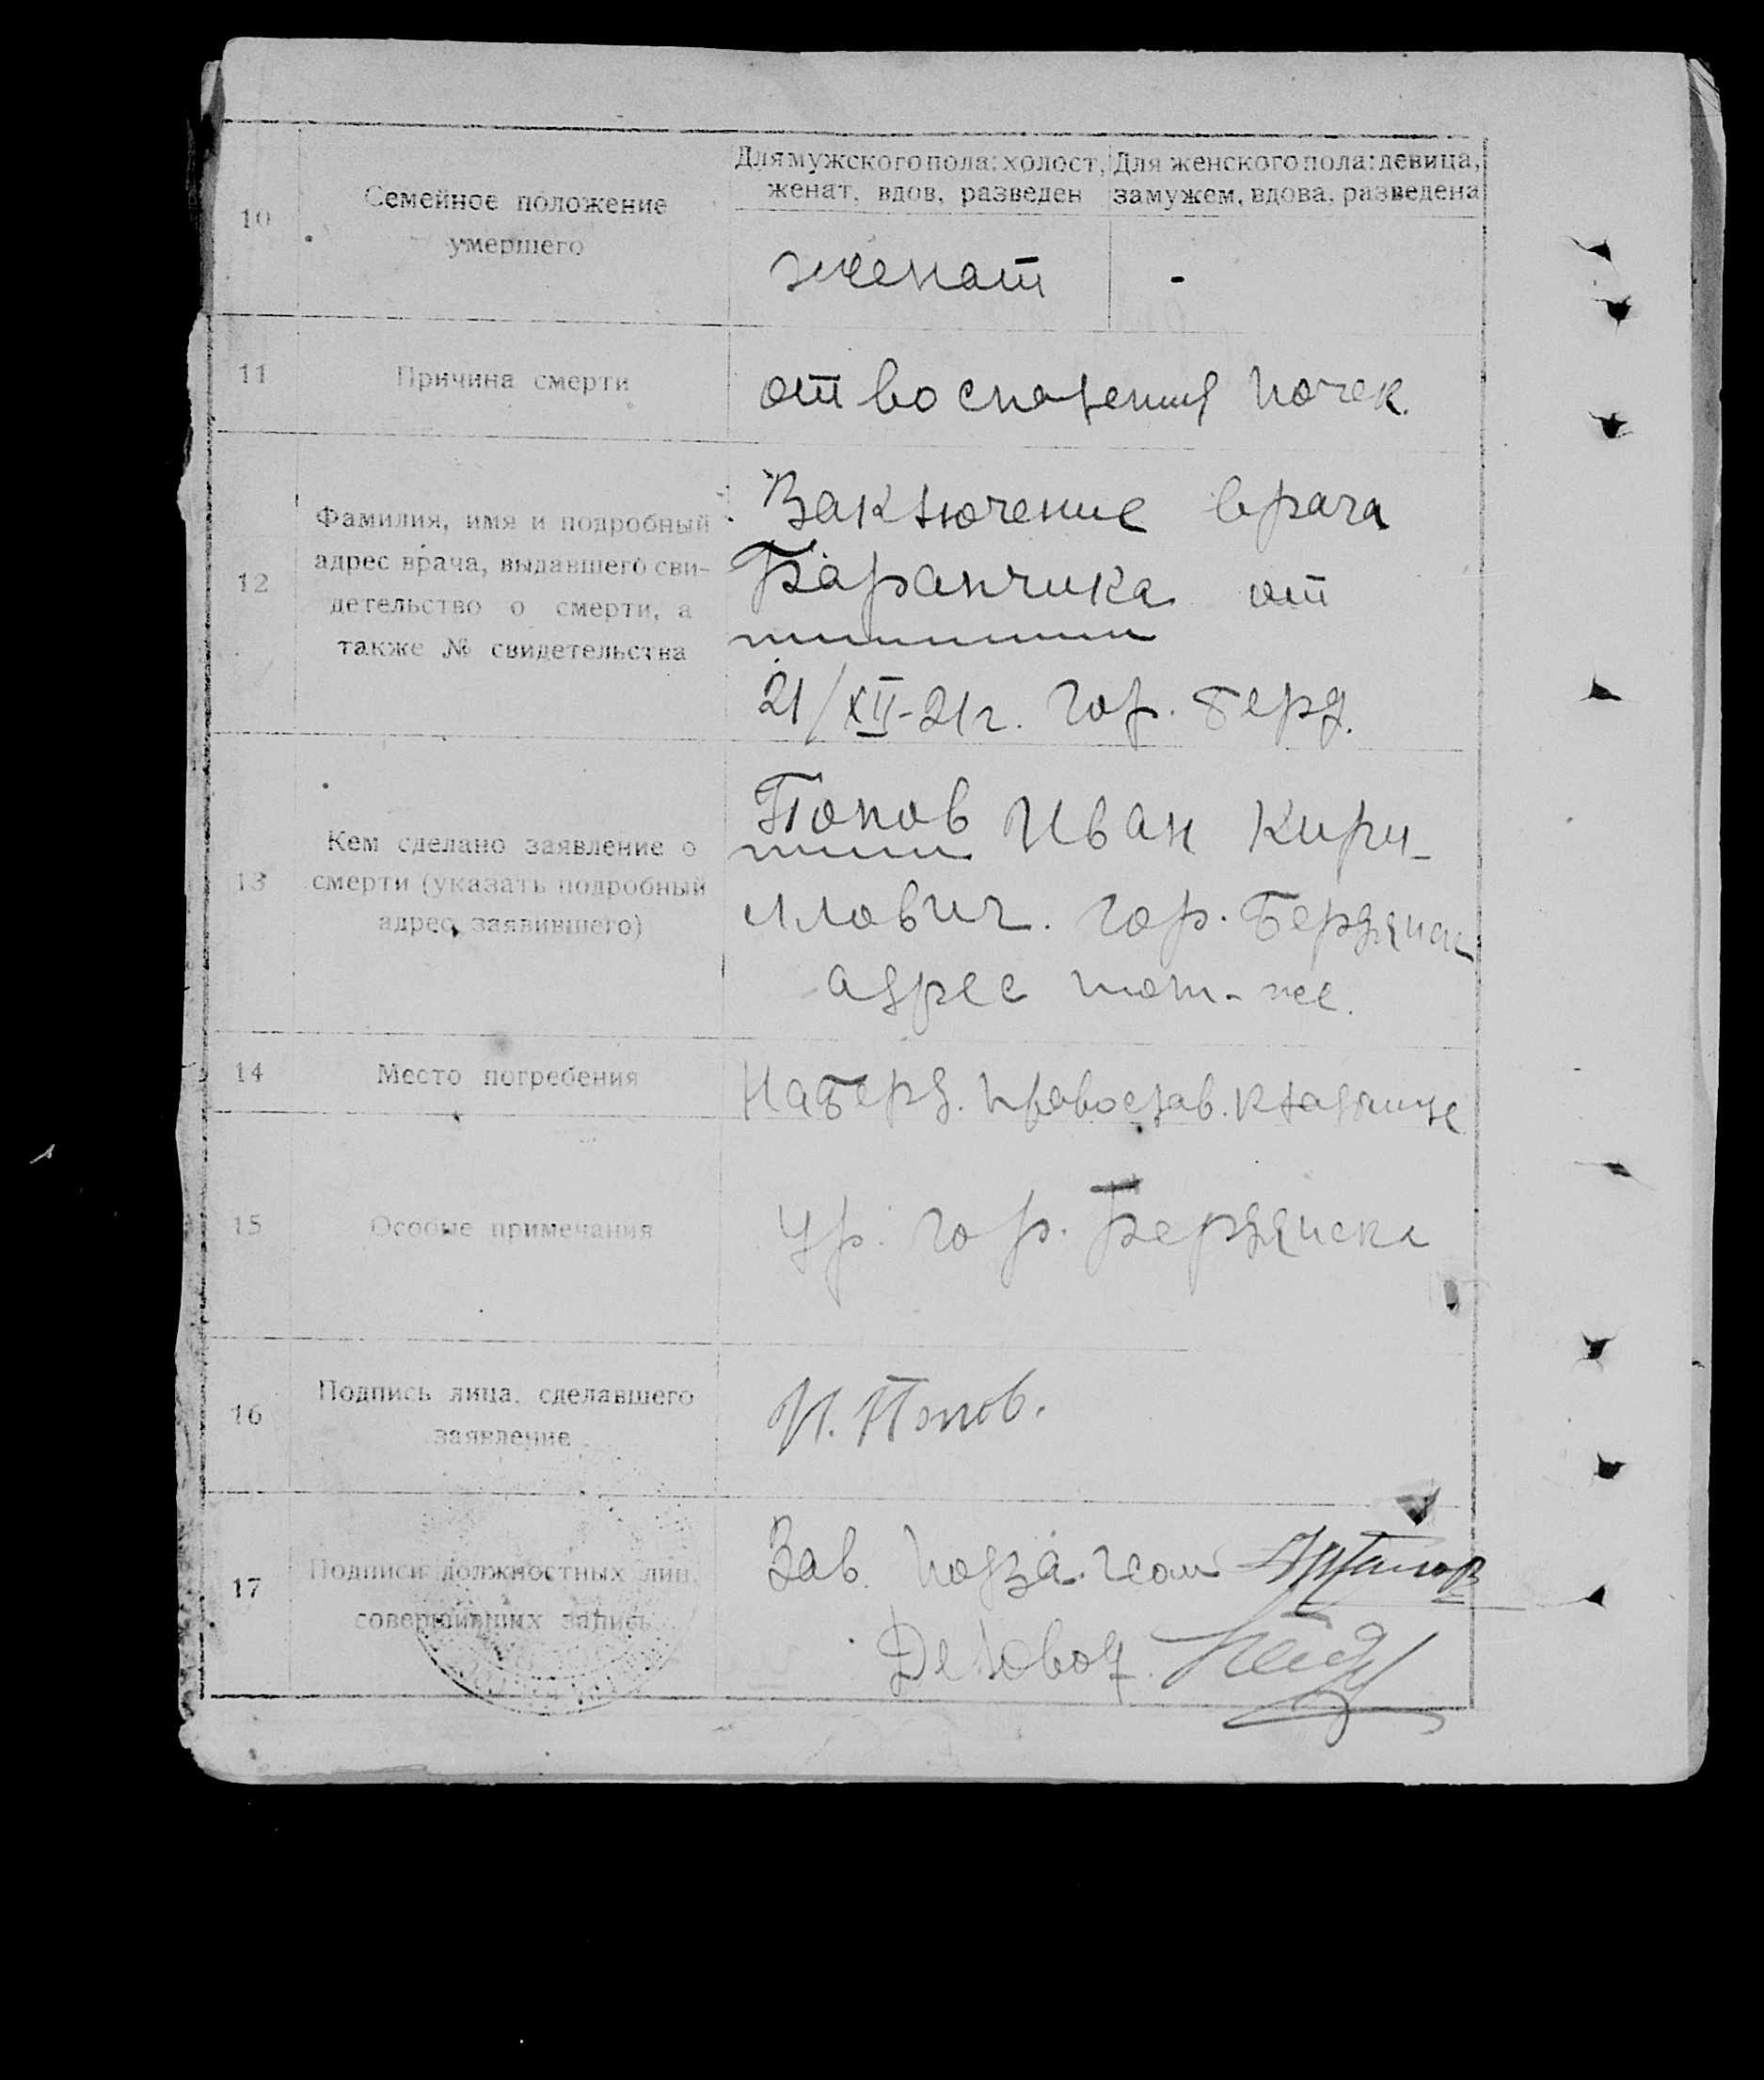 10
Семейное положение
умершего
Для мужского пола: холост,
женат, вдов, разведен
Для женского пола: девица,
замужем, вдова, разведена
женат
-
11
Причина смерти
от воспаления почек.
12
Фамилия, имя и подробный
адрес врача, выдавшего сви-
детельство о смерти, а
также № свидетельства
Заключение врача
Баранчика от
21/XII-21г. гор. Берд.
13
Кем сделано заявление о
смерти (указать подробный
адрес заявившего)
Попов Иван Кири-
ллович. гор. Бердянск
адрес тот-же.
14
Место погребения
На Берд. православ. кладбище
15
Особые примечания
Ур. гор. Бердянска
16
Подпись лица, сделавшего
заявление
И. Попов.
17
Подписи должностных лиц,
совершивших запись
Зав. подзагсом
Деловод.